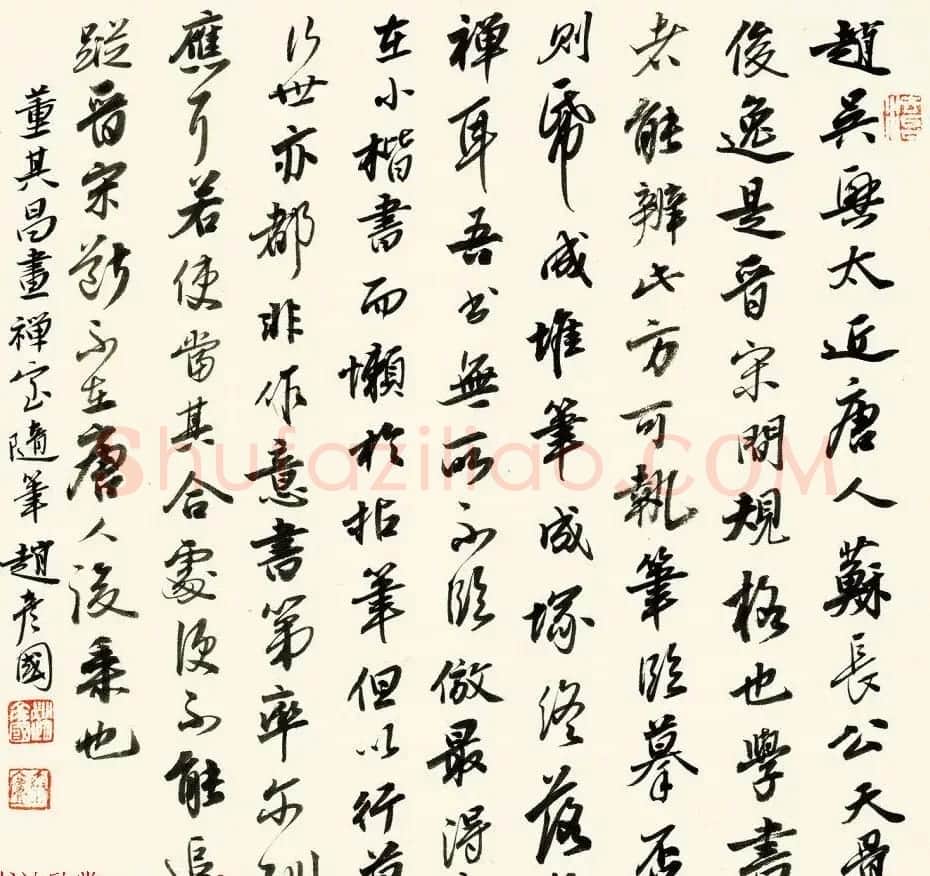 趙吳興太近唐人蘇長公天骨
俊逸是晉宋間規格也學書
者能辨此方可執筆臨摹否
則帋成堆筆成塚終落
禪耳吾書無所不臨倣最得
在小楷書而懶於拈筆但以行草
行世亦都非作意書第率尔酬
應耳若使當其合處便不能追
蹤晉宋斷不在唐人後乘也
董其昌畫禪室隨筆 趙彥國
Shufaziliao.COM